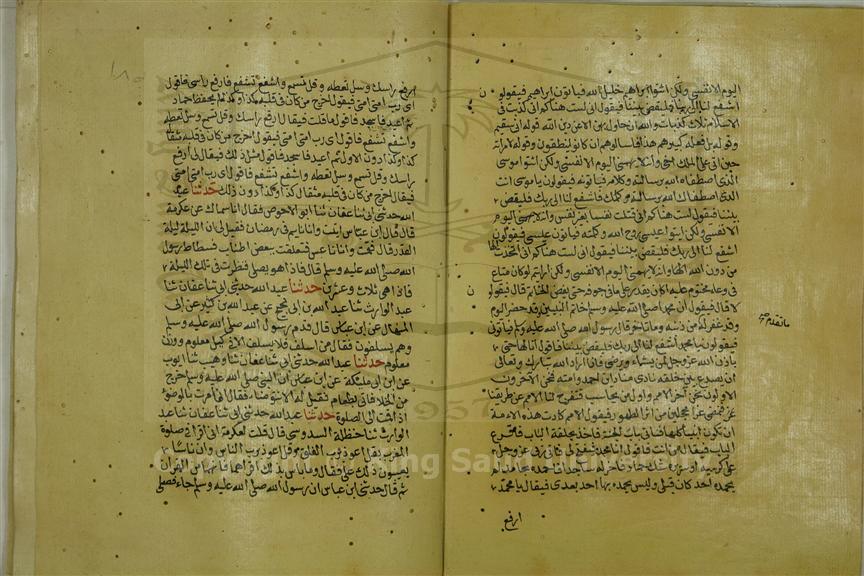 اليوم الا نفسي ولكن ائتوا ابراهيم خليل الله فياتون ابراهيم فيقولون
اشفع لنا الى ربنا فليقض بيننا فيقول اني لست هناكم اني كذبت في
الاسلام ثلاث كذبات والله ان حاول بهن الا عن دين الله قوله اني سقيم
وقوله بل فعله كبيرهم هذا فاسالوهم ان كانوا ينطقون وقوله لامراته
حين اتى على الملك اختي وانه لا يهمني اليوم الا نفسي ولكن ائتوا موسى
الذي اصطفاه الله برسالته وكلامه فياتونه فيقولون يا موسى انت
الذي اصطفاك الله برسالته وكلمك فاشفع لنا الى ربك فليقض
بيننا فيقول لست هناكم اني قتلت نفسا بغير نفس وانه لا يهمني اليوم
الا نفسي ولكن ايتوا عيسى روح الله وكلمته فياتون عيسى فيقولون
اشفع لنا الى ربك فليقض بيننا فيقول اني لست هناكم اني اتخذت الها
من دون الله وانه لا يهمني اليوم الا نفسي ولكن ارايتم لو كان متاع
في وعاء مختوم عليه اكان يقدر على ما في جوفه حتى يفض الخاتم قال فيقولون
لا قال فيقول ان محمدا صلى الله عليه وسلم خاتم النبيين وقد حضر اليوم
وقد غفر له ما من ذنبه وما تاخر قال رسول الله صلى الله عليه وسلم فياتوني
ما تقدم
فيقولون يا محمد اشفع لنا الى ربك فليقض بيننا فاقول انا لها حتى
ياذن الله عز وجل لمن يشاء ويرضى فاذا اراد الله تبارك وتعالى
ان يصدع بين خلقه نادى مناد اين احمد وامته فنحن الاخرون
الاولون نحن اخر الامم واول من يحاسب فتفرج لنا الامم عن طريقنا
فنمضي غرا محجلين من اثر الطهور فيقول الامم كادت هذه الامة
ان تكون انبيا كلها فناتي باب الجنة فاخذ بحلقة الباب فاقرع
الباب فيقال من انت فاقول انا محمد فيفتح لي فاتي ربي عز وجل
على كرسيه او سريره شك حماد فاخر له ساجدا فاحمده بمحامد لم
يحمده احد كان قبلي وليس يحمده بها احد بعدي فيقال يا محمد
ارفع
ارفع راسك وسل تعطه وقل تسمع واشفع تشفع فارفع راسي فاقول
اي رب امتي امتي فيقول اخرج من كان في قلبه كذا وكذا لم يحفظ حماد
ثم اعيد فاسجد فاقول ما قلت فيقال ارفع راسك وقل تسمع وسل تعطه
واشفع تشفع فاقول اي رب امتي امتي فيقول اخرج من كان في قلبه مثقال
كذا وكذا دون الاول ثم اعيد فاسجد فاقول مثل ذلك فيقال لي ارفع
راسك وقل تسمع وسل تعطه واشفع تشفع فاقول اي رب امتي امتي
فيقال اخرج من كان في قلبه مثقال كذا وكذا دون ذلك حدثنا عبد
الله حدثني ابي ثنا عفان ثنا ابو الاحوص قال انا سماك عن عكرمة
قال قال ابن عباس اتيت وانا نايم في رمضان فقيل لي ان الليلة ليلة
القدر قال فقمت وانا ناعس فتعلقت ببعض اطناب فسطاط رسول
الله صلى الله عليه وسلم قال فاذا هو يصلي فنظرت في تلك الليلة
فاذا هي ثلاث وعشرين حدثنا عبد الله حدثني ابي ثنا عفان ثنا
عبد الوارث ثنا عبد الله بن ابي نجيح عن عبد الله بن كثير عن ابي
المنهال عن ابن عباس قال قدم رسول الله صلى الله عليه وسلم
وهم يسلفون فقال من اسلف فلا يسلف الا في كيل معلوم ووزن
معلوم حدثنا عبد الله حدثني ابي ثنا عفان ثنا وهيب ثنا ايوب
عن ابن ابي مليكة عن ابن عباس ان النبي صلى الله عليه وسلم خرج
من الخلا فاتي بطعام فقيل له الا تتوضا فقال انما امرت بالوضوء
اذا اقمت الى الصلوة حدثنا عبد الله حدثني ابي ثنا عفان ثنا عبد
الوارث ثنا حنظلة السدوسي قال قلت لعكرمة اني اقرا في صلوة
المغرب بقل اعوذ برب الفلق وقل اعوذ برب الناس وان ناسا
يعيبون ذلك علي فقال وما باس بذلك اقراهما فانهما من القرآن
ثم قال حدثني ابن عباس ان رسول الله صلى الله عليه وسلم جاء فصلى
1957